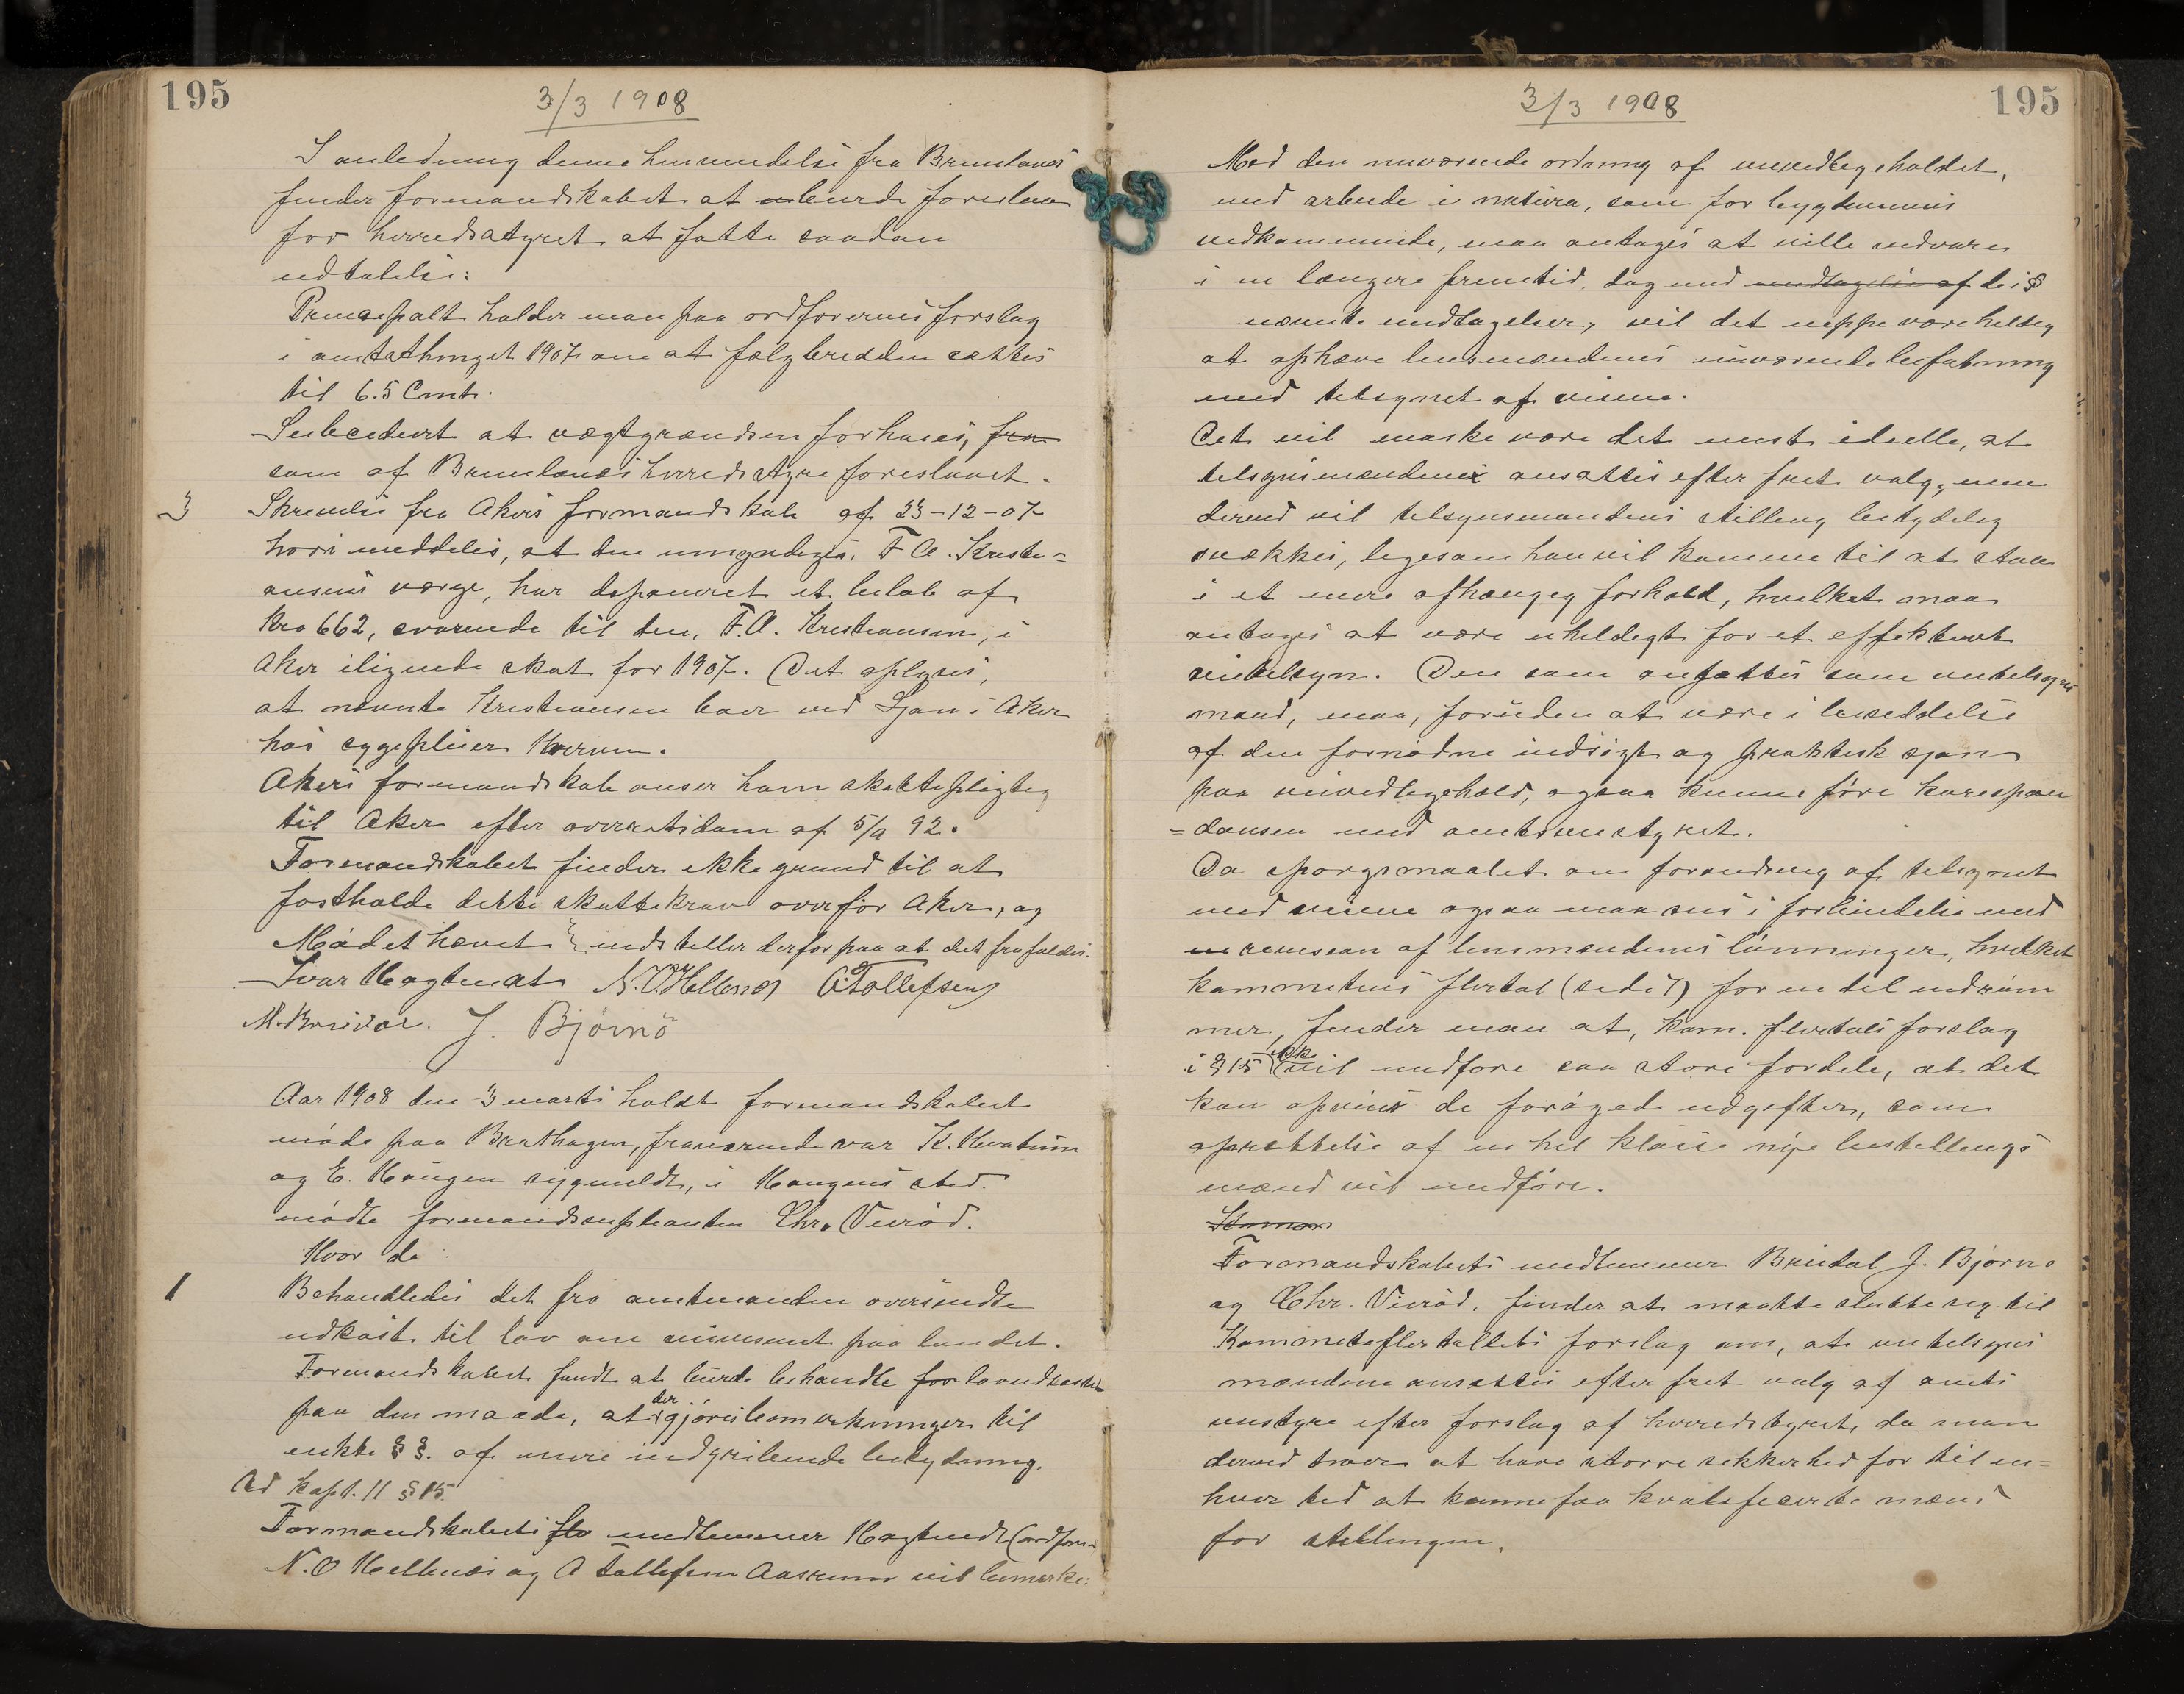 195
3/3 1908
I anledning denne henvendelse fra Brunlanæs
finder formandskabet at burde foreslaa
for herredsstyret at fatte saadan
udtalelse:
Princepalt holder man paa ordførerens forslag
i amtsthinget 1907 om at fælgbredden sættes
til 6.5 Cmt.
Subcedert at vægtgrændsen forhøies, fra
som af Brunlanæs herredsstyre foreslaaet.
3 Skrivelse fra Akers formandskab af 23-12-07
hvori meddeles, at den umyndiges, F A. Kristi=
ansens værge, har deponeret et beløb af
Kro 662, svarende til den, F.A. Kristiansen, i
Aker ilignede skat for 1907. Det oplyses,
at nævnte Kristiansen boer ved Ljan i Aker
hos sygepleier Kverum.
Akers formandskab anser ham skattepligtig
til Aker efter overretsdom af 5/9 92.
Formandskabet finder ikke grund til at
fastholde dette skattekrav overfor Aker, og
Mødet hævet { indstiller derfor paa at det frafaldes.
Ivar Hogtvedt N.O Hellenes A Tollefsen
M. Bredal. J. Bjørnø
Aar 1908 den 3 marts holdt formandskabet
møde paa Brathagen, fraværende var K. Kvatum
og E. Haugen sygmeldt, i Haugens sted
mødte formandssuplianten Chr. Vierød.
Hvor da
1 Behandledes det fra amtmanden oversendte
udkast til lov om veivæsnet paa landet.
Formandskabet fandt at burde behandle for lovudkastet
paa den maade, at der gjøres bemerkninger til
enkte §§. af mere indgribende betydning.
Ad kapt. 11 § 15.
Formandskabets fle medlemmer Hogtvedt (ordfører
N.O Hellenes og A Tollefsen Aasrum vil bemerke:
195
3/3 1908
Med den nuværende ordning af veivedligeholdet,
med arbeide i natura, som for bygdeveienes
vedkommende, maa antages at ville vedvare
i en længere fremtid, dog med undtagelse af de i §
nævnte undtagelser, vil det neppe være heldig
at ophæve lensmændenes nuværende befatning
med tilsynet af veiene.
Det vil maske være det mest ideelle, at
tilsynsmændene ansættes efter frit valg, men
derved vil tilsynsmandens stilling betydelig
svækkes, ligesom han vil komme til at staa
i et mere afhængig forhold, hvilket maa
antages at være uheldigt for et effektivt
veitilsyn. Den som ansættes som veitilsyns
mand, maa, foruden at være i besiddelse
af den fornødne indsigt og praktisk sjøn
paa veivedligehold, ogsaa kunne føre korespon
=dansen med amtsveistyret.
Da spørgsmaalet om forandring af tilsynet
med veiene ogsaa maa sees i forbindelse med
en revision af lensmændenes lønninger, hvilket
kommiteens flertal (side 7) for en del indrøm
mer, finder man at, kom. flertals forslag
i § 15 ikke vil medføre saa store fordele, at det
kan opveie de forøgede udgifter, som
oprettelse af en hel klasse nye bestillings
mænd vil medføre.
Formandskabets medlemmer Bredal J. Bjørnø
og Chr. Vierød. finder at maatte slutte seg til
Kommiteflertallets forslag om, at veitilsyns
mændene ansættes efter frit valg af amts
veistyre efter forslag af herredstyret, da man
derved troer at have større sekkerhed for til en=
hver tid at kunne faa kvalificerte mænd
for stillingen.